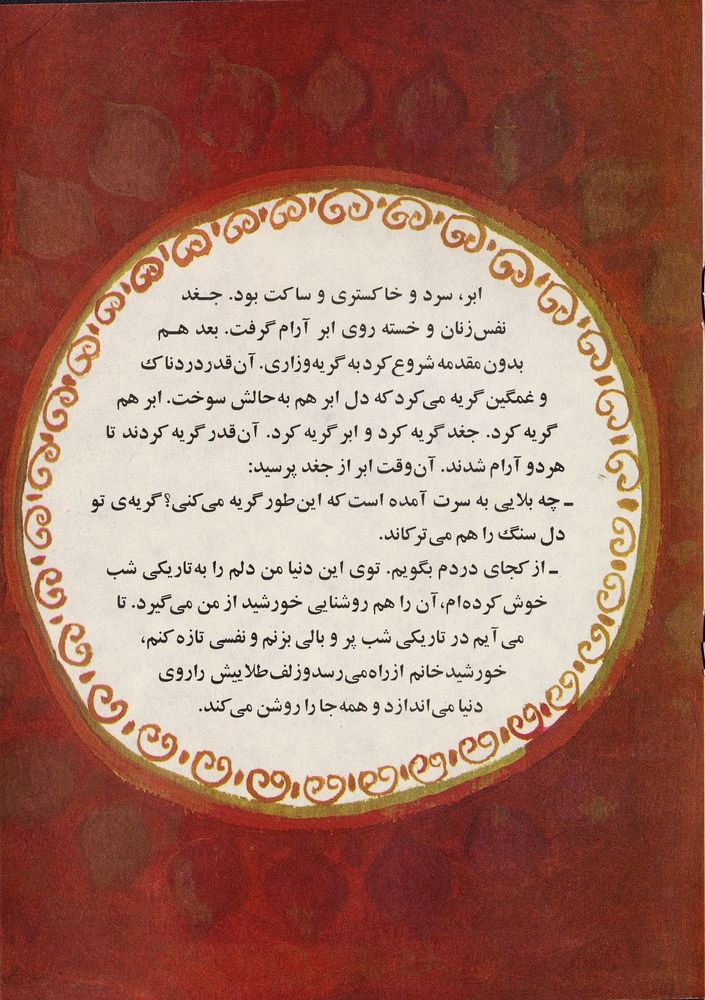 ابر، سرد و خاکستری و ساکت بود. جـغد
نفس‌زنان و خسته روی ابر آرام گرفت. بعد هـم
بدون مقدمه شروع کرد به گریه‌وزاری. آن‌قدر دردناک
و غمگین گریه می‌کرد که دل ابر هم به‌حالش سوخت. ابر هم
گریه کرد. جغد گریه کرد و ابر گریه کرد. آن‌قدر گریه کردند تا
هردو آرام شدند. آن‌وقت ابر از جغد پرسید:
ـ چه بلایی به سرت آمده است که این‌طور گریه می‌کنی؟ گریه‌ی تو
دل سنگ را هم می‌ترکاند.
ـ از کجای دردم بگویم. توی این دنیا من دلم را به‌تاریکی شب
خوش کرده‌ام، آن را هم روشنایی خورشید از من می‌گیرد. تا
می‌آیم در تاریکی شب پر و بالی بزنم و نفسی تازه کنم،
خورشیدخانم از راه می‌رسد و زلف طلاییش را روی
دنیا می‌اندازد و همه‌جا را روشن می‌کند.